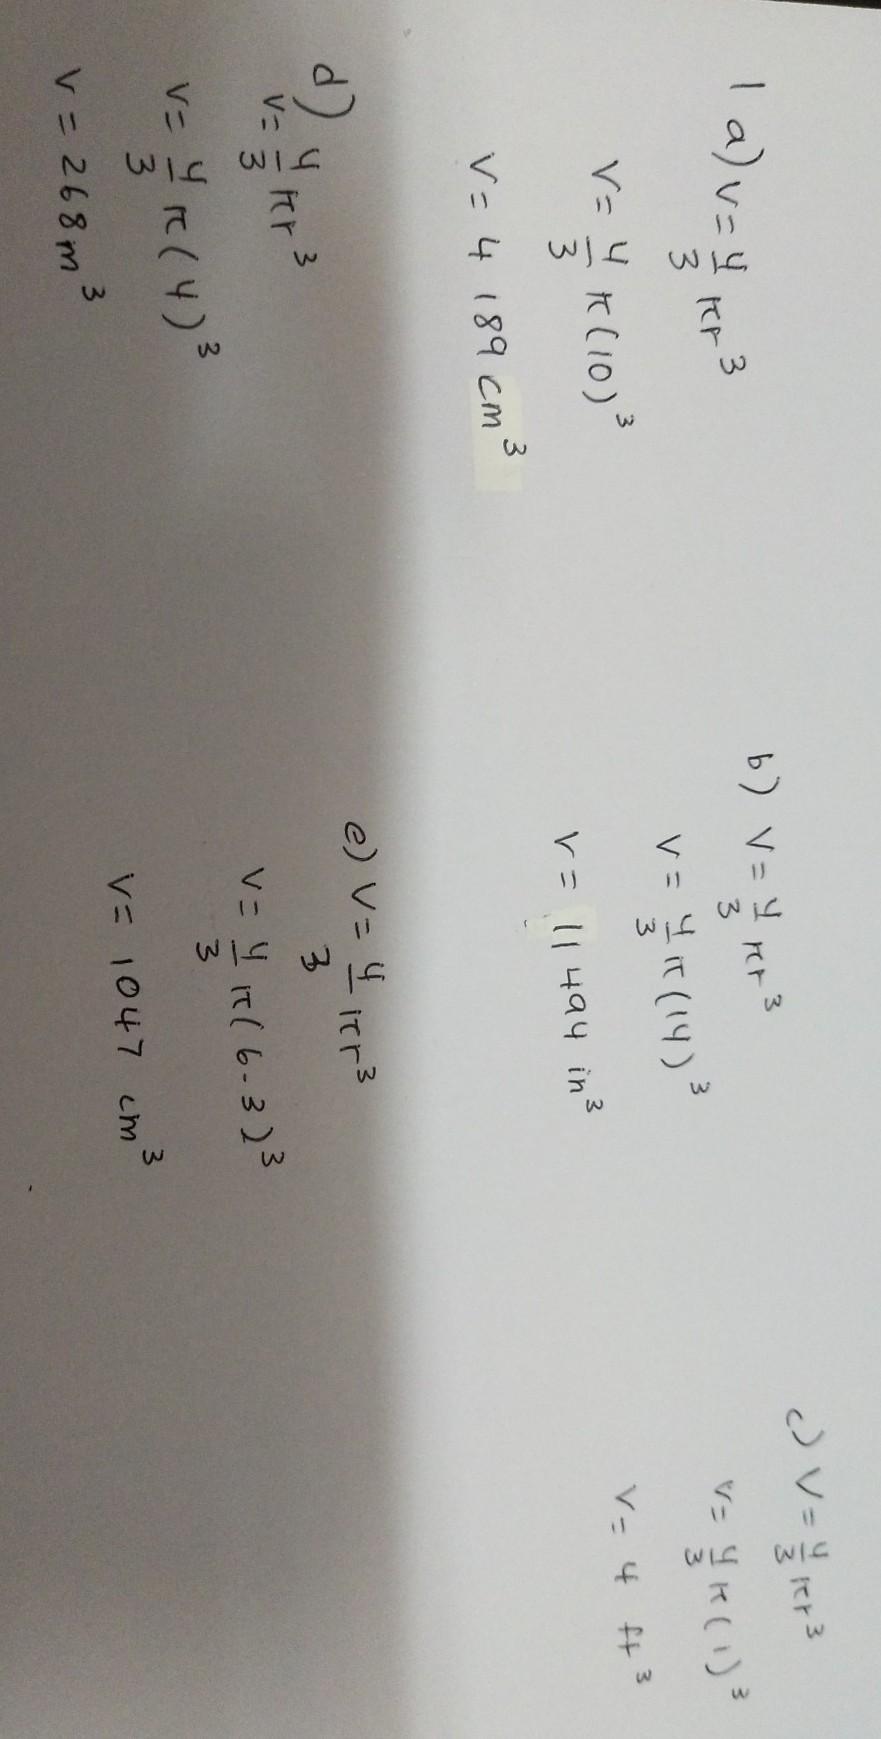 1 a) V = 4/3 πr³
V = 4/3 π(10)³
V = 4 189 cm³
b) V = 4/3 πr³
V = 4/3 π(14)³
V = 11 494 in³
c) V = 4/3 πr³
V = 4/3 π(1)³
V = 4 ft³
d) V = 4/3 πr³
V = 4/3 π(4)³
V = 268 m³
e) V = 4/3 πr³
V = 4/3 π(6.3)³
V = 1047 cm³